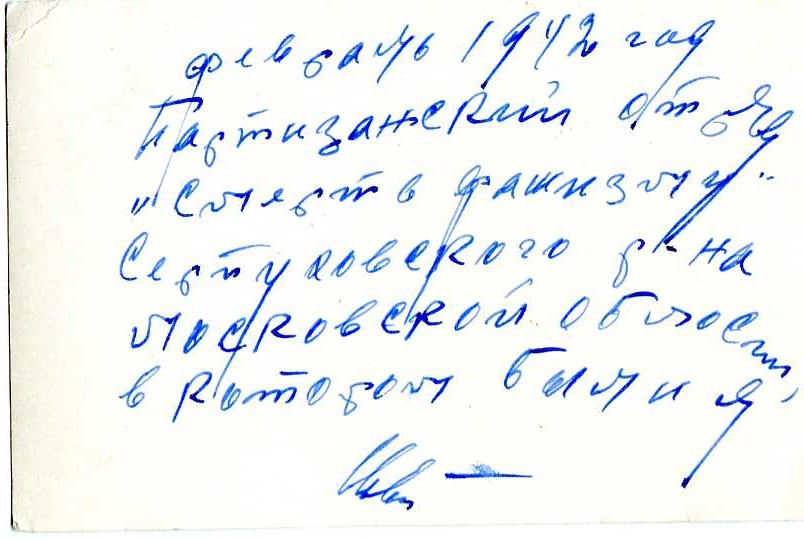 февраль 1942 год
Партизанский отряд
"Смерть фашизму"
Серпуховского р-на
Московской области,
в котором был и я